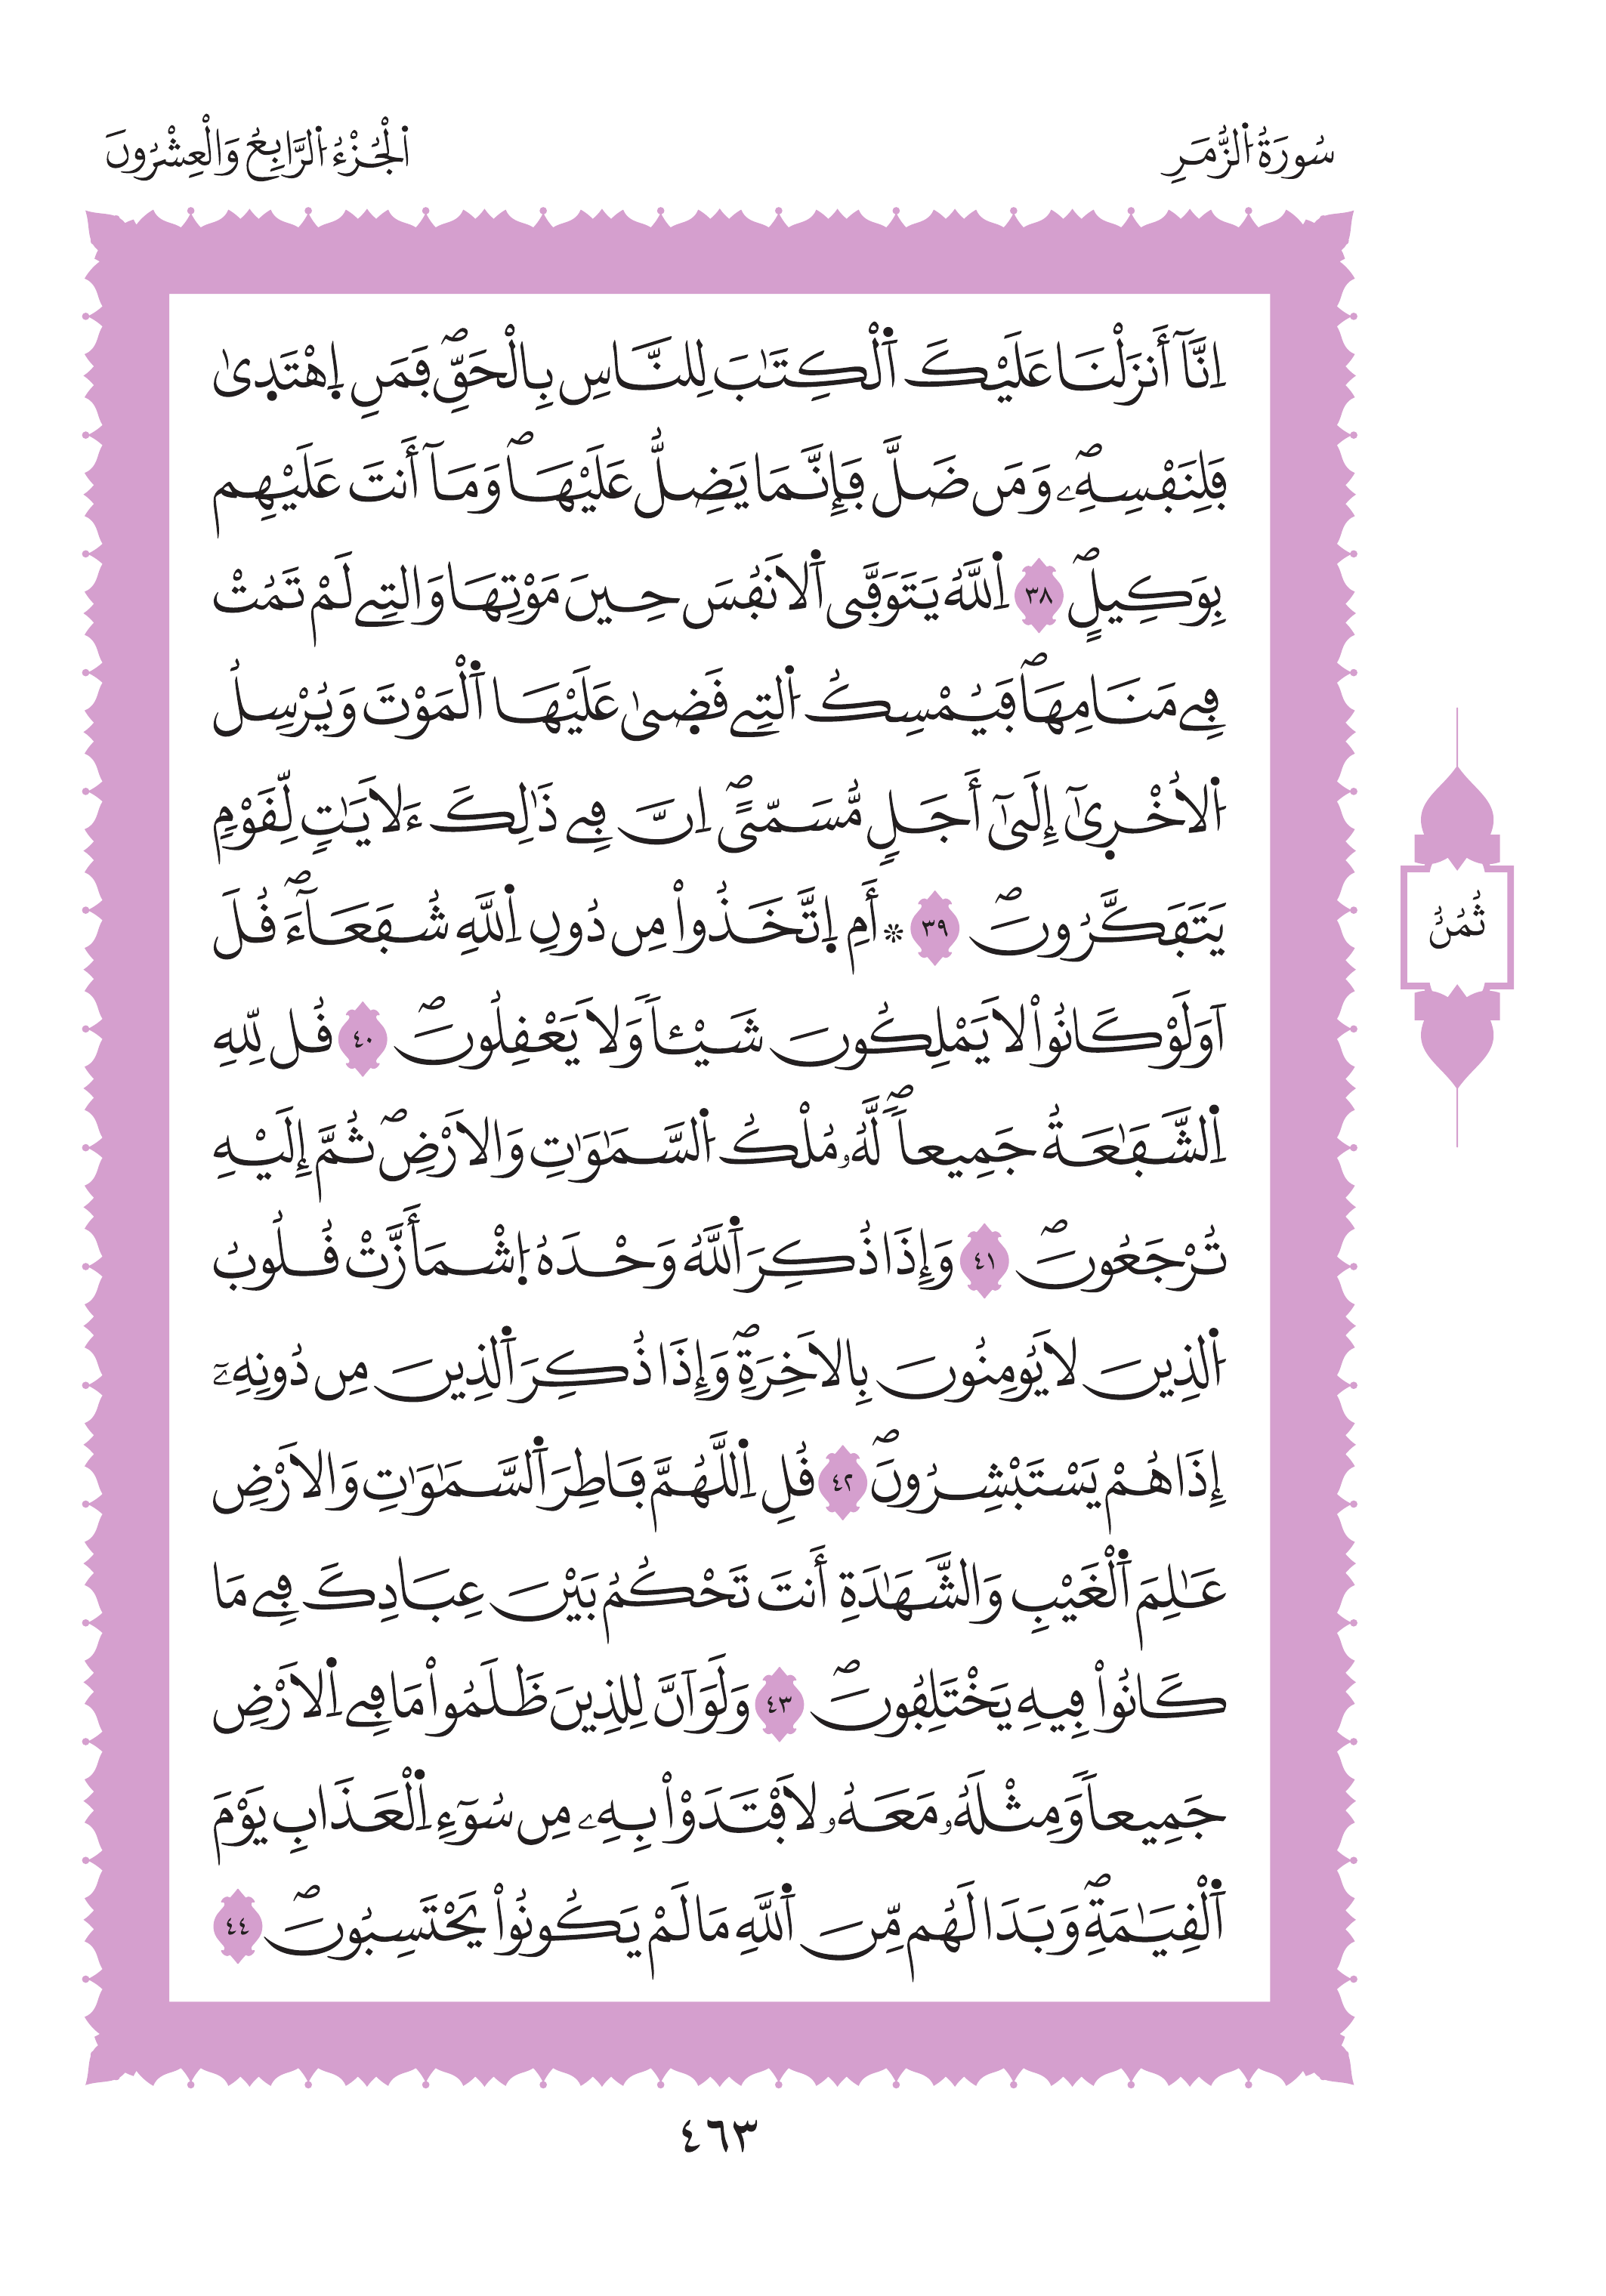 سُورَةُ اُ۬لزُّمَرِ
اُ۬لْجُزْءُ اُ۬لرَّابِعُ وَالْعِشْرُونَ
اِنَّآ أَنزَلْنَا عَلَيْكَ اَ۬لْكِتَٰبَ لِلنَّاسِ بِالْحَقِّۖ فَمَنِ اِ۪هْتَد۪ىٰ
فَلِنَفْسِهِۦۖ وَمَن ضَلَّ فَإِنَّمَا يَضِلُّ عَلَيْهَاۖ وَمَآ أَنتَ عَلَيْهِم
بِوَكِيلٍۖ ٣٨ اِ۬للَّهُ يَتَوَفَّى اَ۬لَانفُسَ حِينَ مَوْتِهَا وَالتِے لَمْ تَمُتْ
فِے مَنَامِهَاۖ فَيُمْسِكُ اُ۬لتِے قَض۪ىٰ عَلَيْهَا اَ۬لْمَوْتَ وَيُرْسِلُ
اُ۬لُاخْر۪ىٰٓ إِلَىٰٓ أَجَلٍ مُّسَمّىًۖ اِنَّ فِے ذَٰلِكَ ءَلَايَٰتٍ لِّقَوْمٍ
يَتَفَكَّرُونَۖ ٣٩ ۞ أَمِ اِ۪تَّخَذُواْ مِن دُونِ اِ۬للَّهِ شُفَعَآءَۖ قُلَ
اَوَلَوْ كَانُواْ لَا يَمْلِكُونَ شَيْـٔاً وَلَا يَعْقِلُونَۖ ٤٠ قُل لِّلهِ
اِ۬لشَّفَٰعَةُ جَمِيعاًۖ لَّهُۥ مُلْكُ اُ۬لسَّمَٰوَٰتِ وَالَارْضِۖ ثُمَّ إِلَيْهِ
تُرْجَعُونَۖ ٤١ وَإِذَا ذُكِرَ اَ۬للَّهُ وَحْدَهُ اُ۪شْمَأَزَّتْ قُلُوبُ
اُ۬لذِينَ لَا يُومِنُونَ بِالَاخِرَةِۖ وَإِذَا ذُكِرَ اَ۬لذِينَ مِن دُونِهِۦٓ
إِذَا هُمْ يَسْتَبْشِرُونَۖ ٤٢ قُلِ اِ۬للَّهُمَّ فَاطِرَ اَ۬لسَّمَٰوَٰتِ وَالَارْضِ
عَٰلِمَ اَ۬لْغَيْبِ وَالشَّهَٰدَةِ أَنتَ تَحْكُمُ بَيْنَ عِبَادِكَ فِے مَا
كَانُواْ فِيهِ يَخْتَلِفُونَۖ ٤٣ وَلَوَ اَنَّ لِلذِينَ ظَلَمُواْ مَا فِے اِ۬لَارْضِ
جَمِيعاً وَمِثْلَهُۥ مَعَهُۥ لَافْتَدَوْاْ بِهِۦ مِن سُوٓءِ اِ۬لْعَذَابِ يَوْمَ
اَ۬لْقِيَٰمَةِۖ وَبَدَا لَهُم مِّنَ اَ۬للَّهِ مَا لَمْ يَكُونُواْ يَحْتَسِبُونَۖ ٤٤
ثُمُنُ
٤٦٣